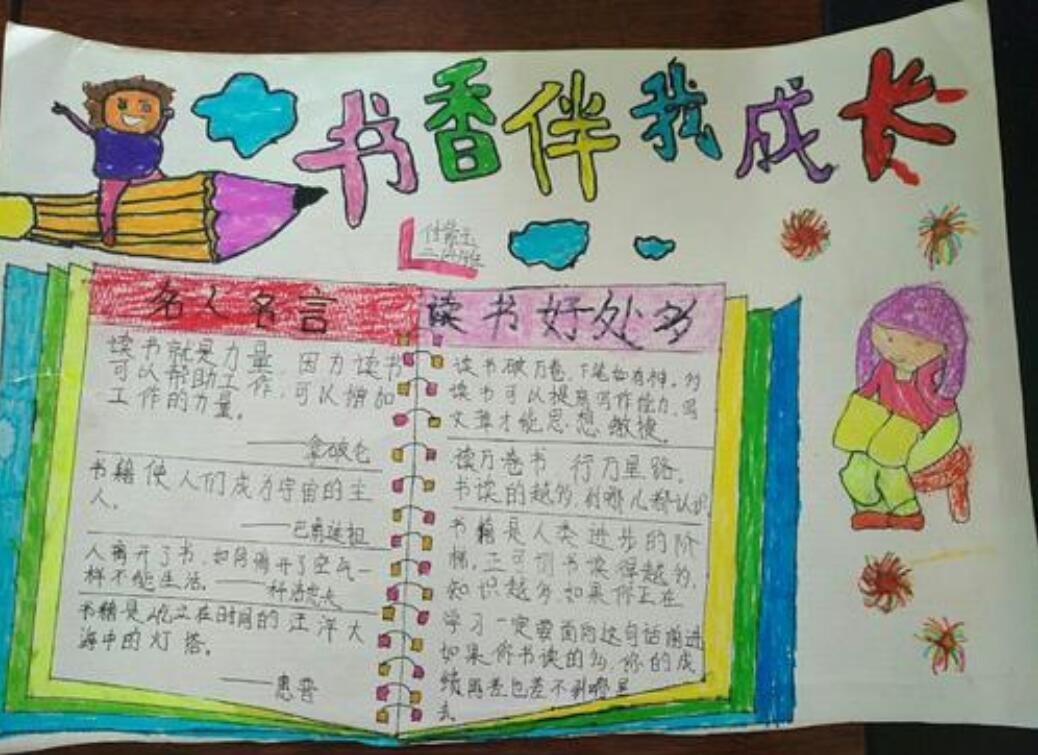 书香伴我成长
名人名言
读书就是力量，因为读书
可以帮助工作，可以增加
工作的力量。
——拿破仑
书籍使人们成为宇宙的主
人。
——巴甫连柯
人离开了书，如同离开了空气一
样不能生活。——科洛廖夫
书籍是屹立在时间的汪洋大
海中的灯塔。
——惠普
读书好处多
读书破万卷，下笔如有神。多
读书可以提高写作能力，写
文章才能思想敏捷。
读万卷书 行万里路。
书读的越多，到哪儿都认识
书籍是人类进步的阶
梯，正可谓书读得越多，
知识越多如果你正在
学习一定要面向这句话前进
如果你书读的多，你的成
绩再差也差不到哪里
去